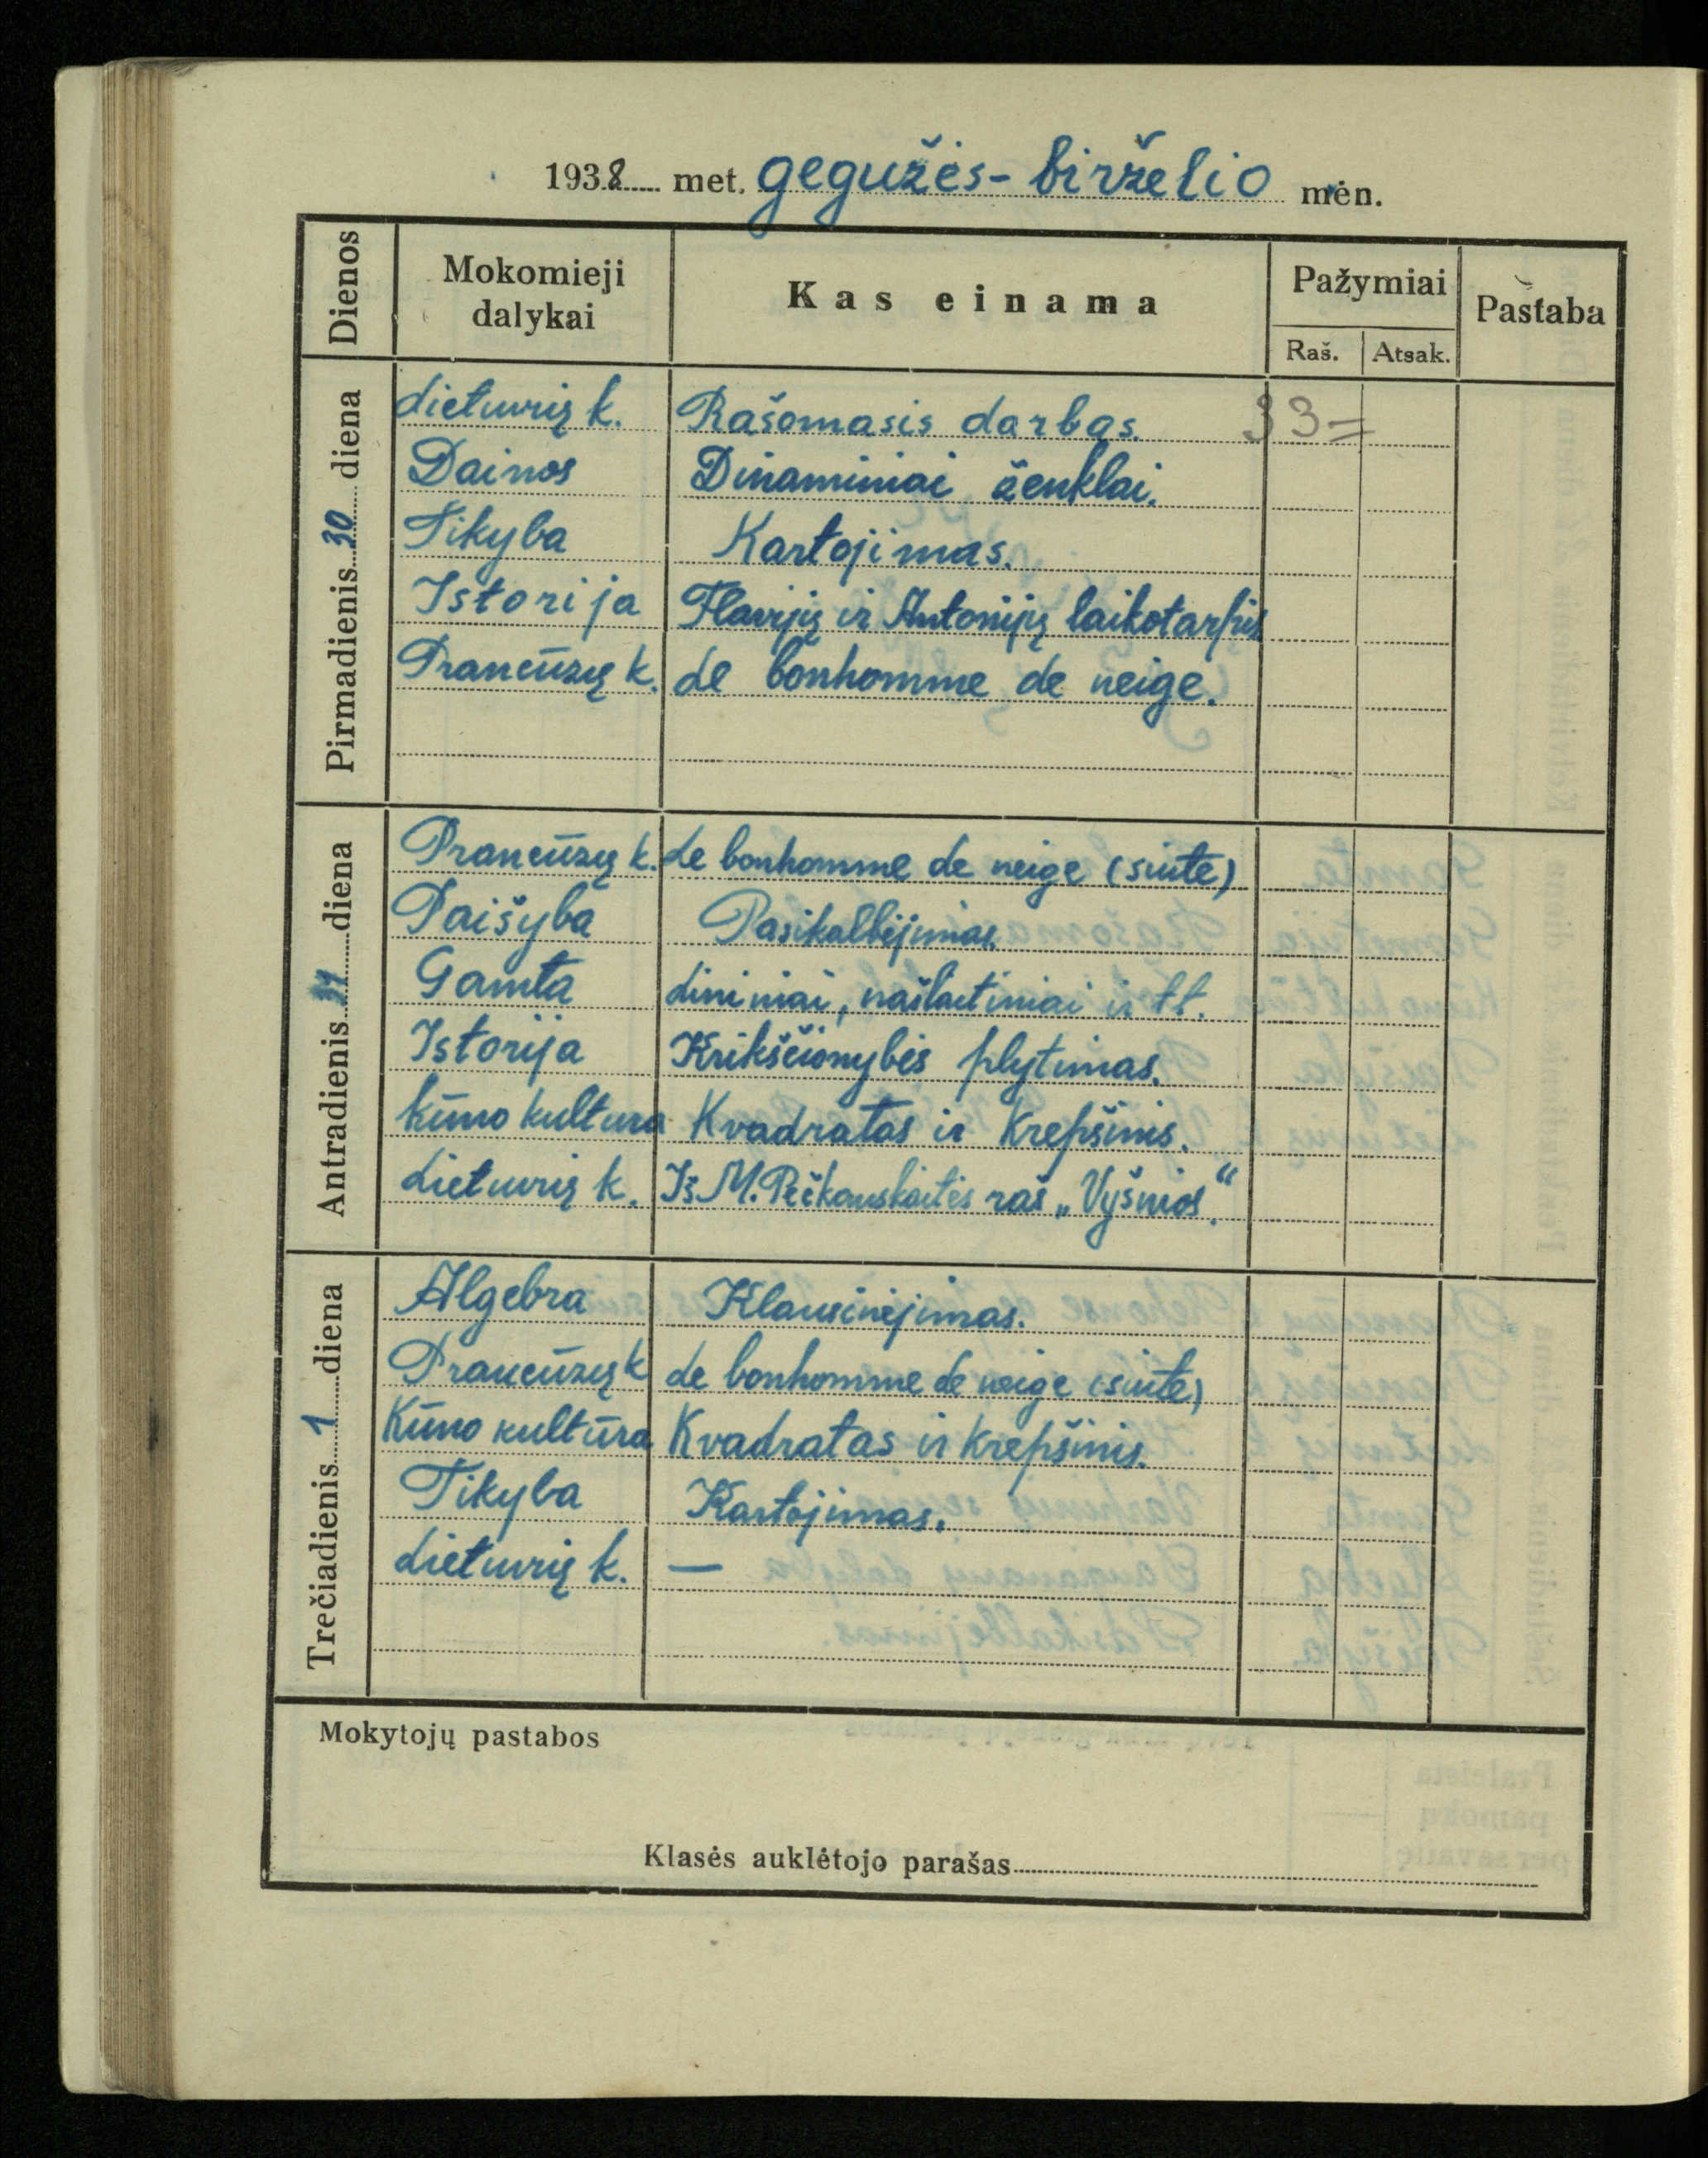 1938 met. gegužės-birželio mėn.
Dienos Mokomieji dalykai Kas einama Pažymiai Pastaba
Raš. Atsak.
Pirmadienis 30 diena
Lietuvių k. Rašomasis darbas. 33=
Dainos Dinaminiai ženklai.
Tikyba Kartojimas.
Istorija Flavijų ir Antonijų laikotarpis
Prancūzų k. Le bonhomme de neige.
Antradienis 31 diena
Prancūzų k. Le bonhomme de neige (suite)
Paišyba Pasikalbėjimas.
Gamta Lininiai, našlaitiniai ir tt.
Istorija Krikščionybės plytimas.
kūno kultura Kvadratas ir Krepšinis.
Lietuvių k. Iš M. Pečkauskaitės raš „Vyšnios."
Trečiadienis 1 diena
Algebra Klausinėjimas.
Prancūzų k Le bonhomme de neige (suite)
Kūno kultūra Kvadratas ir krepšinis.
Tikyba Kartojimas.
Lietuvių k. —
Mokytojų pastabos
Klasės auklėtojo parašas